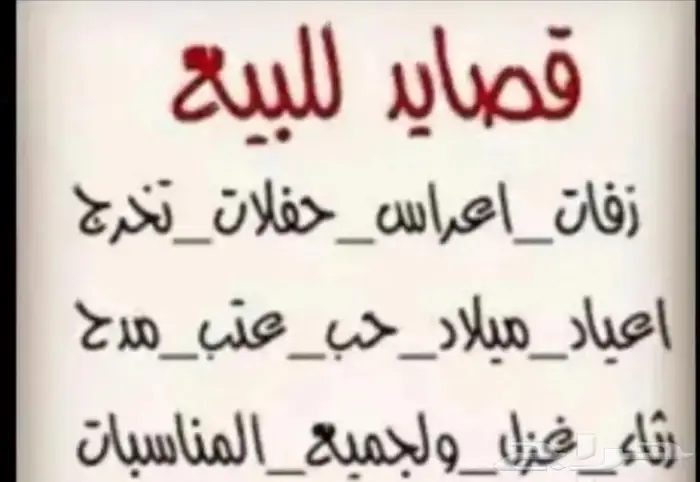 قصايد للبيع
زفات_اعراس_حفلات_تخرج
اعياد_ميلاد_حب_عتب_مدح
رثاء_غزل_ولجميع_المناسبات